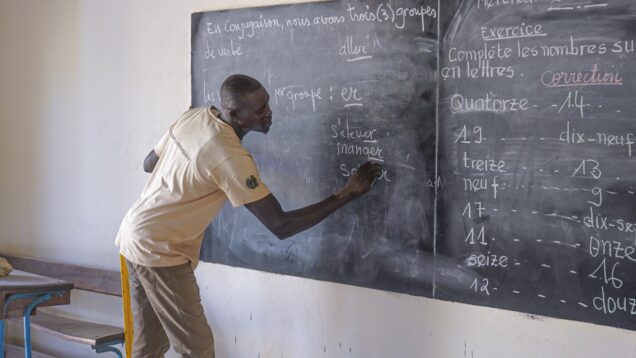 En Conjugaison, nous avons trois (3) groupes
de verbe
aller
groupe : er
S'élever
manger
Exercice
Complète les nombres su
en lettres.
Correction
Quatorze 14
19 dix-neuf
treize 13
neuf 9
17 dix-se
11 onze
seize 16
12 douz